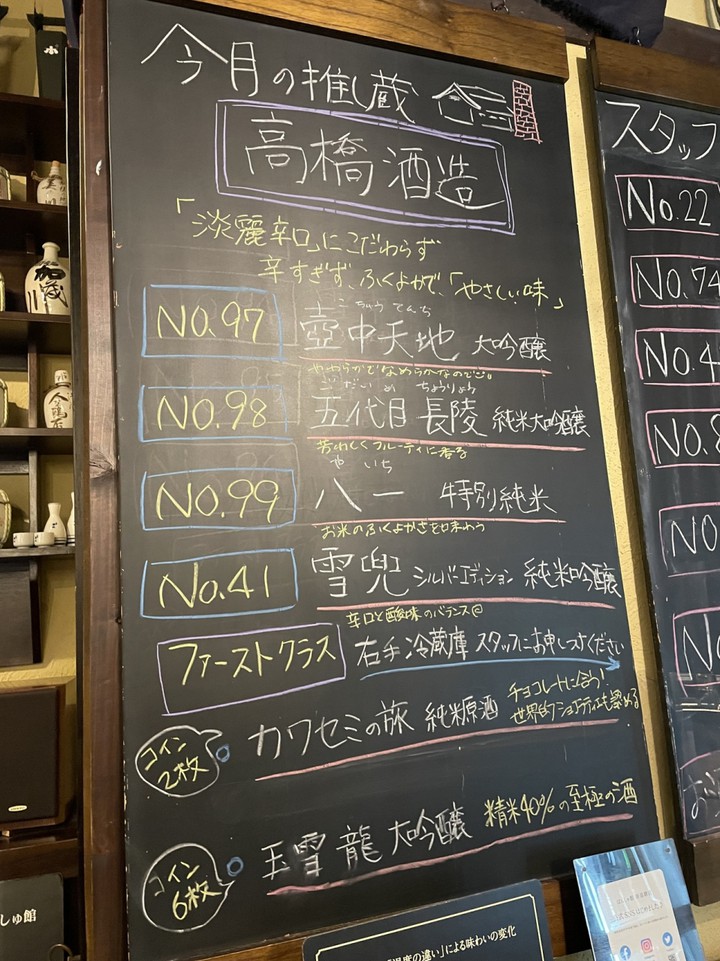 今月の推し蔵
高橋酒造
「淡麗辛口」にこだわらず
辛すぎず、ふくよかで、「やさしい味」
No.97
こちゅうてんち
壺中天地 大吟醸
やわらかでなめらかなのどごし
No.98
ごだいめ ちょうりょう
五代目 長陵 純米大吟醸
芳わしくフルーティに香る
No.99
やいち
八一 特別純米
お米のふくよかさを味わう
No.41
雪兜 シルバーエディション 純米吟醸
辛口と酸味のバランス◎
ファーストクラス
右手冷蔵庫 スタッフにお申しつけください
コイン
2枚
カワセミの旅 純米原酒
チョコレートに合う!
世界的ショコラティエも薦める
コイン
6枚
玉雪龍 大吟醸 精米40%の至極の酒
スタッフ
No.22
No.74
No.4
No.8
No
No
No
しゅ館
温度の違い」による味わいの変化